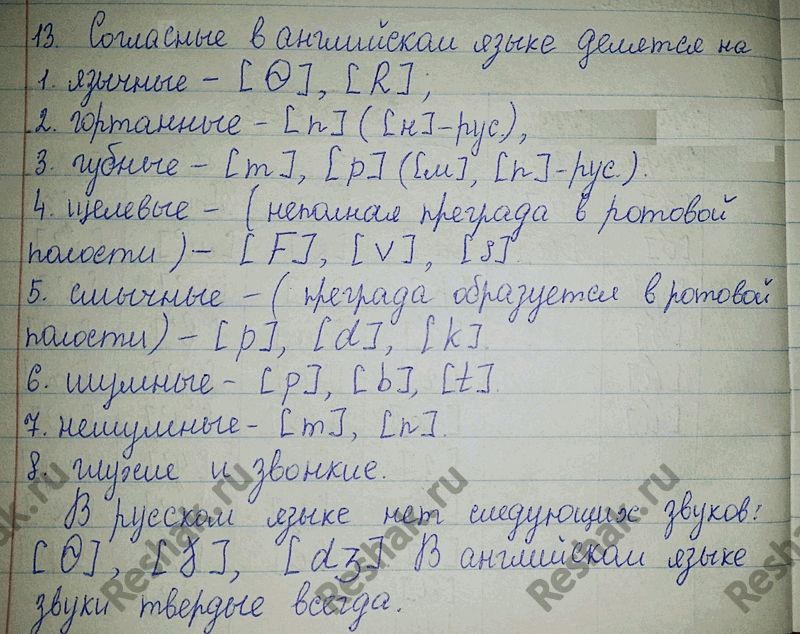 13. Согласные в английском языке делятся на
1. язычные – [Θ], [R];
2. гортанные – [n] ([н]-рус.),
3. губные – [m], [p] ([м], [п]-рус.).
4. щелевые – (неполная преграда в ротовой
полости) – [F], [v], [s].
5. смычные – (преграда образуется в ротовой
полости) – [p], [d], [k].
6. шумные – [p], [b], [t].
7. нешумные – [m], [n].
8. глухие и звонкие.
В русском языке нет следующих звуков:
[Θ], [ꝸ], [dz] В английском языке
звуки твердые всегда.
Reshak.ru
Reshak.ru
Reshak.ru
Reshak.ru